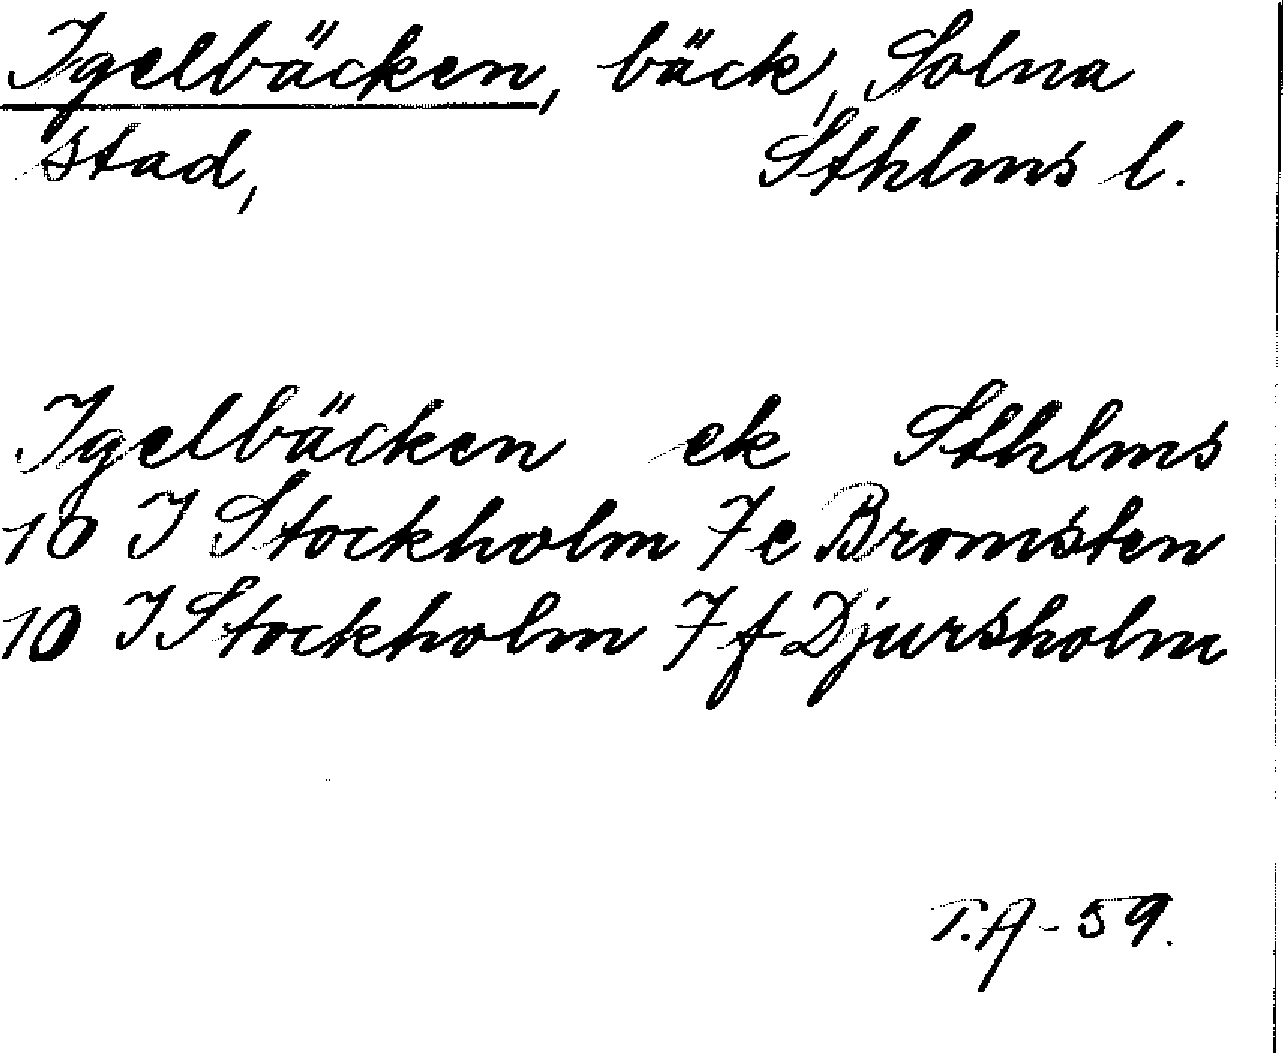 Igelbäcken, bäck, Solna
stad, Sthlms l.
Igelbäcken ek Sthlms
10 I Stockholm 7e Bromsten
10 I Stockholm 7f Djursholm
T.A-59.